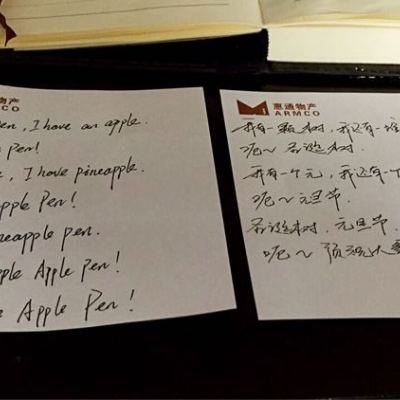 物产
CO
en, I have an apple.
Pen!
, I have pineapple.
pple Pen!
neapple pen.
ple Apple Pen!
e Apple Pen!
惠通物产
ARMCO
我有一颗树, 我还有一堆
呃~ 圣诞树.
我有一个元, 我还有一个
呃~ 元旦节.
圣诞树, 元旦节.
呃~ 预祝大家